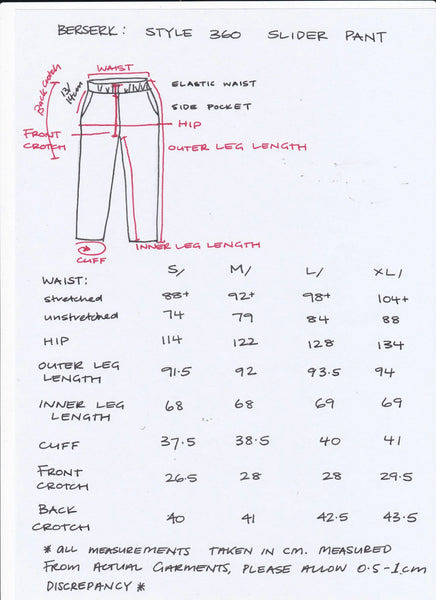 BERSERK: STYLE 360 SLIDER PANT
WAIST
Back Crotch
13/14cm
ELASTIC WAIST
SIDE POCKET
HIP
FRONT CROTCH
OUTER LEG LENGTH
INNER LEG LENGTH
CUFF
S/ M/ L/ XL/
WAIST:
stretched 88+ 92+ 98+ 104+
unstretched 74 79 84 88
HIP 114 122 128 134
OUTER LEG LENGTH 91.5 92 93.5 94
INNER LEG LENGTH 68 68 69 69
CUFF 37.5 38.5 40 41
FRONT CROTCH 26.5 28 28 29.5
BACK CROTCH 40 41 42.5 43.5
* ALL MEASUREMENTS TAKEN IN CM. MEASURED
FROM ACTUAL GARMENTS, PLEASE ALLOW 0.5-1cm
DISCREPANCY *